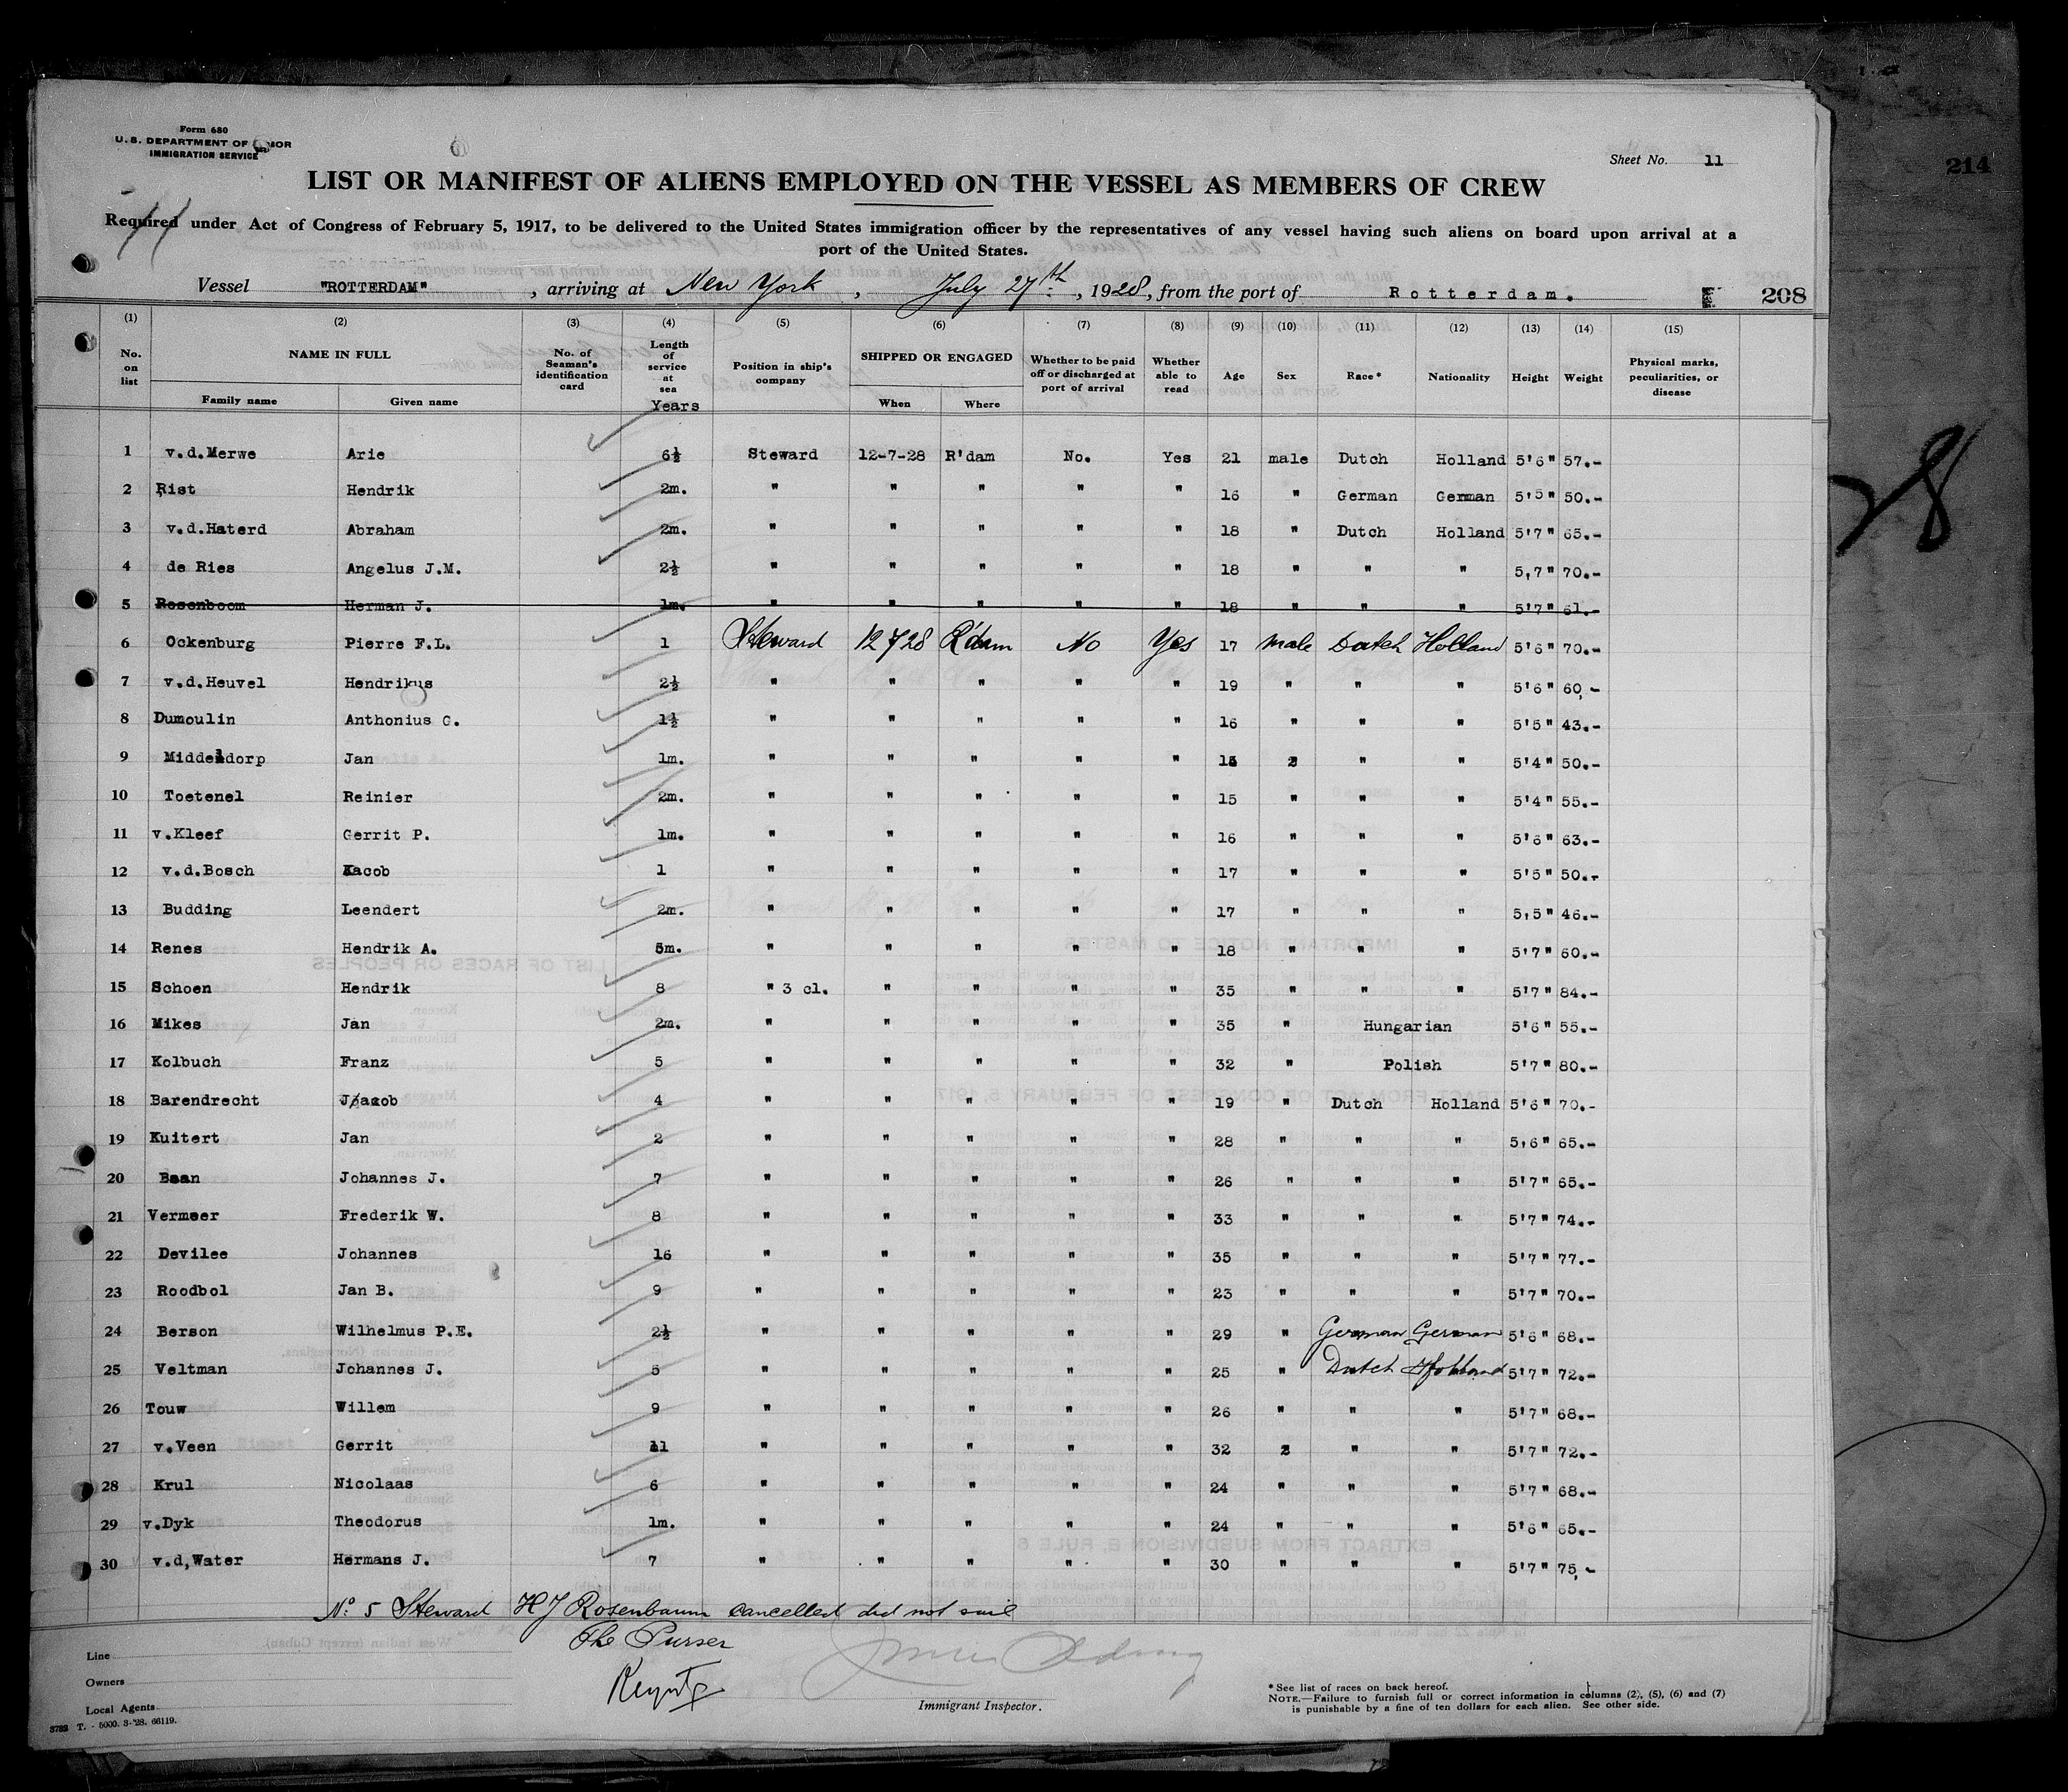 Form 680
U. S. DEPARTMENT OF
IMMIGRATION SERVICE
Sheet No. 11
214
LIST OR MANIFEST OF ALIENS EMPLOYED ON THE VESSEL AS MEMBERS OF CREW
11
Required under Act of Congress of February 5, 1917, to be delivered to the United States immigration officer by the representatives of any vessel having such aliens on board upon arrival at a
port of the United States.
Vessel "ROTTERDAM", arriving at New York, July 27th, 1928, from the port of Rotterdam. 208
(1) (2) (3) (4) (5) (6) (7) (8) (9) (10) (11) (12) (13) (14) (15)
No. on list NAME IN FULL Family name Given name No. of Seaman's identification card Length of service at sea Years Position in ship's company SHIPPED OR ENGAGED When Where Whether to be paid off or discharged at port of arrival Whether able to read Age Sex Race* Nationality Height Weight Physical marks, peculiarities, or disease
1 v.d.Merwe Arie 6½ Steward 12-7-28 R'dam No. Yes 21 male Dutch Holland 5'6" 57.-
2 Rist Hendrik 2m. " " " " " 16 " German German 5'5" 50.-
3 v.d.Haterd Abraham 2m. " " " " " 18 " Dutch Holland 5'7" 65.-
4 de Ries Angelus J.M. 2½ " " " " " 18 " " " 5,7" 70.-
5 Rosenboom Herman J. 1m. " " " " " 18 " " " 5'7" 61.-
6 Ockenburg Pierre F.L. 1 Steward 12 7 28 R'dam No Yes 17 male Dutch Holland 5'6" 70.-
7 v.d.Heuvel Hendrikus 2½ " " " " " 19 " " " 5'6" 60,-
8 Dumoulin Anthonius G. 1½ " " " " " 16 " " " 5'5" 43.-
9 Middeldorp Jan 1m. " " " " " " " 5'4" 50.-
10 Toetenel Reinier 2m. " " " " " 15 " " " 5'4" 55.-
11 v.Kleef Gerrit P. 1m. " " " " " 16 " " " 5'6" 63.-
12 v.d.Bosch Jacob 1 " " " " " 17 " " " 5'5" 50.-
13 Budding Leendert 2m. " " " " " 17 " " " 5,5" 46.-
14 Renes Hendrik A. 5m. " " " " " 18 " " " 5'7" 60.-
15 Schoen Hendrik 8 " 3 cl. " " " " 35 " " " 5'7" 84.-
16 Mikes Jan 2m. " " " " " 35 " Hungarian 5'6" 55.-
17 Kolbuch Franz 5 " " " " " 32 " Polish 5'7" 80.-
18 Barendrecht Jacob 4 " " " " " 19 " Dutch Holland 5'6" 70.-
19 Kuitert Jan 2 " " " " " 28 " " " 5,6" 65.-
20 Baan Johannes J. 7 " " " " " 26 " " " 5'7" 65.-
21 Vermeer Frederik W. 8 " " " " " 33 " " " 5'7" 74.-
22 Devilee Johannes 16 " " " " " 35 " " " 5'7" 77.-
23 Roodbol Jan B. 9 " " " " " 23 " " " 5'7" 70.-
24 Berson Wilhelmus P.E. 2½ " " " " " 29 " German German 5'6" 68.-
25 Veltman Johannes J. 5 " " " " " 25 " Dutch Holland 5'7" 72.-
26 Touw Willem 9 " " " " " 26 " " " 5'7" 68.-
27 v.Veen Gerrit 11 " " " " " 32 " " 5'7" 72.-
28 Krul Nicolaas 6 " " " " " 24 " " " 5'7" 68.-
29 v.Dyk Theodorus 1m. " " " " " 24 " " " 5'6" 65.-
30 v.d,Water Hermans J. 7 " " " " " 30 " " " 5'7" 75,-
No. 5 Steward H J Rosenbaum cancelled did not sail
The Purser
Line
Owners
Local Agents
Immigrant Inspector.
*See list of races on back hereof.
NOTE.—Failure to furnish full or correct information in columns (2), (5), (6) and (7)
is punishable by a fine of ten dollars for each alien. See other side.
3782 T. - 5000. 3-'28. 66119.
28